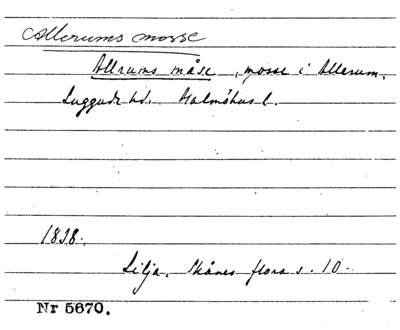 Allerums mosse
Allrums måse, mosse i Allerum.
Luggude hd. Malmöhus l.
1838.
Lilja. Skånes flora s. 10.
Nr 5670.